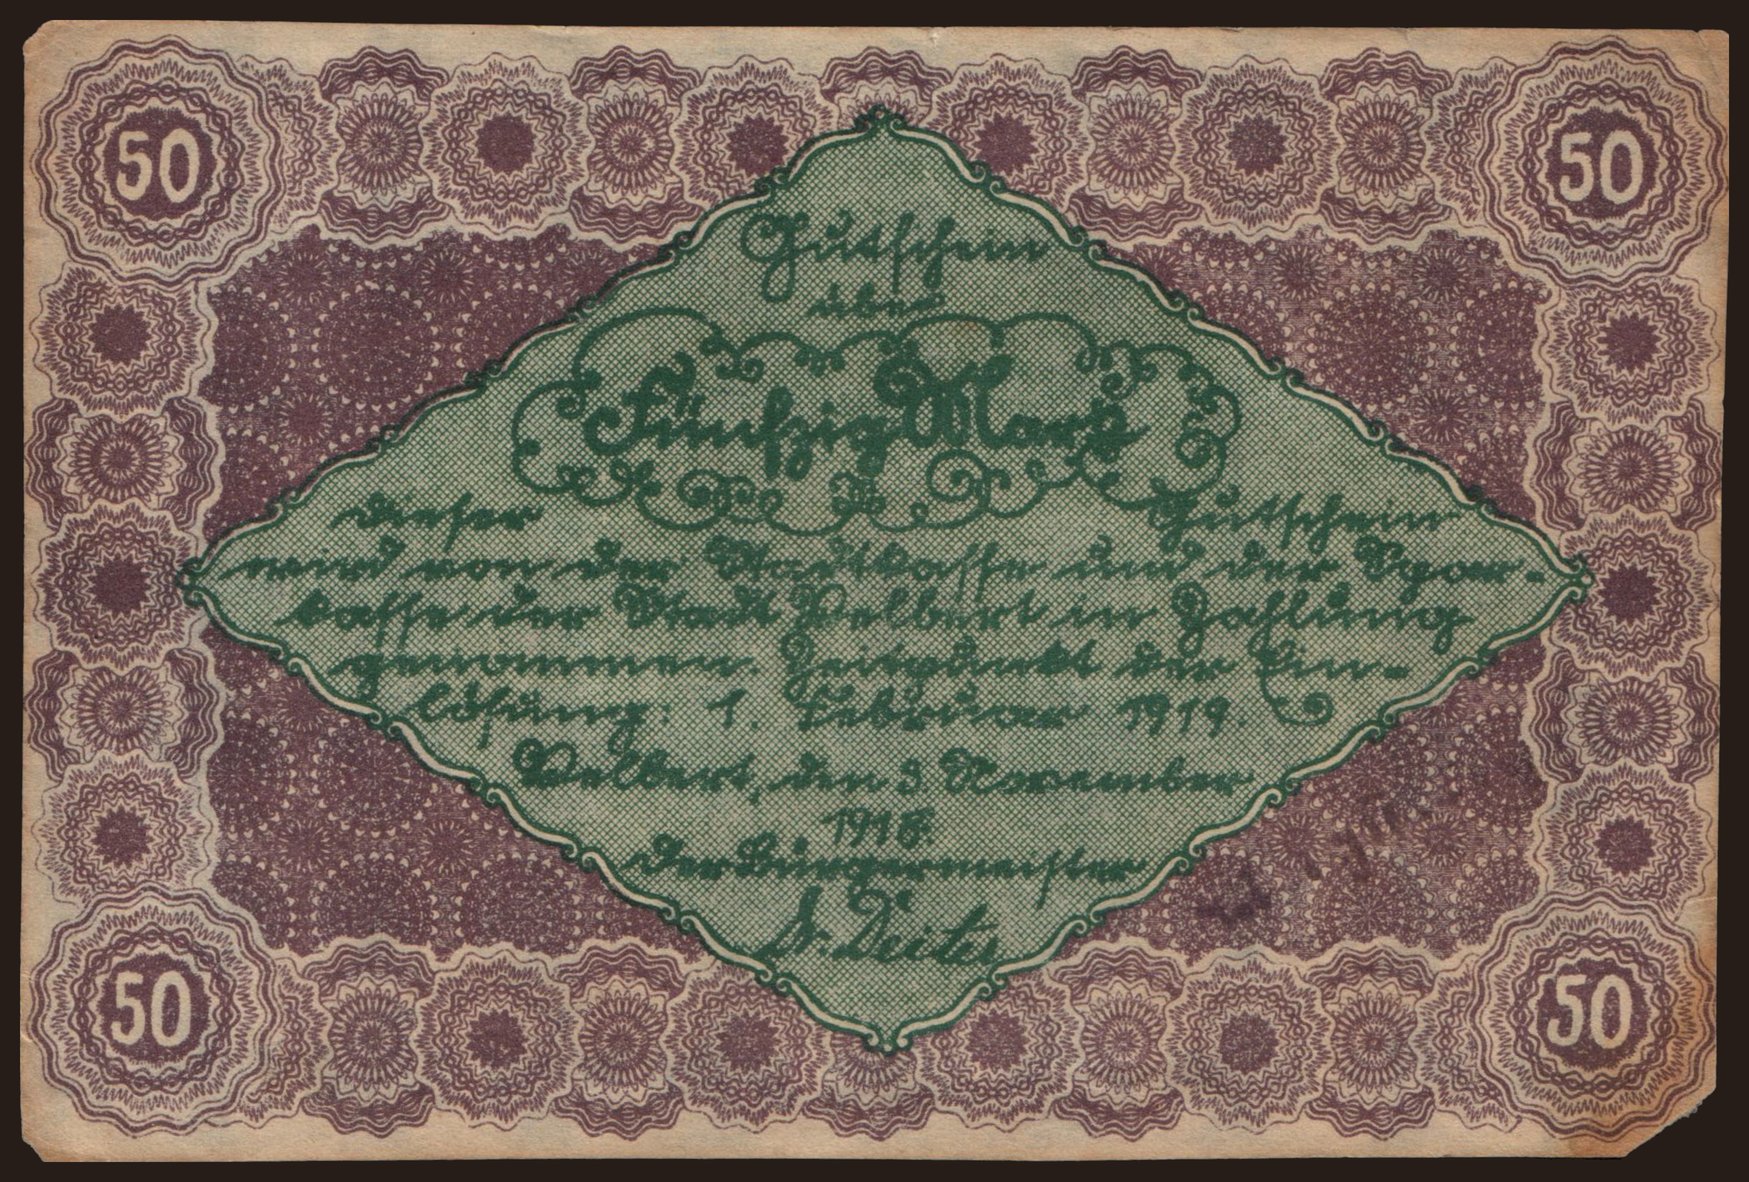 50
50
Gutschein
über
Fünfzig Mark
Dieser Gutschein
wird von der Stadtkasse und der Spar-
kasse der Stadt Velbert in Zahlung
genommen. Zeitpunkt der Ein-
lösung: 1. Februar 1919.
Velbert, den 3. November
1918.
Der Bürgermeister
Dr. Deiters
50
50